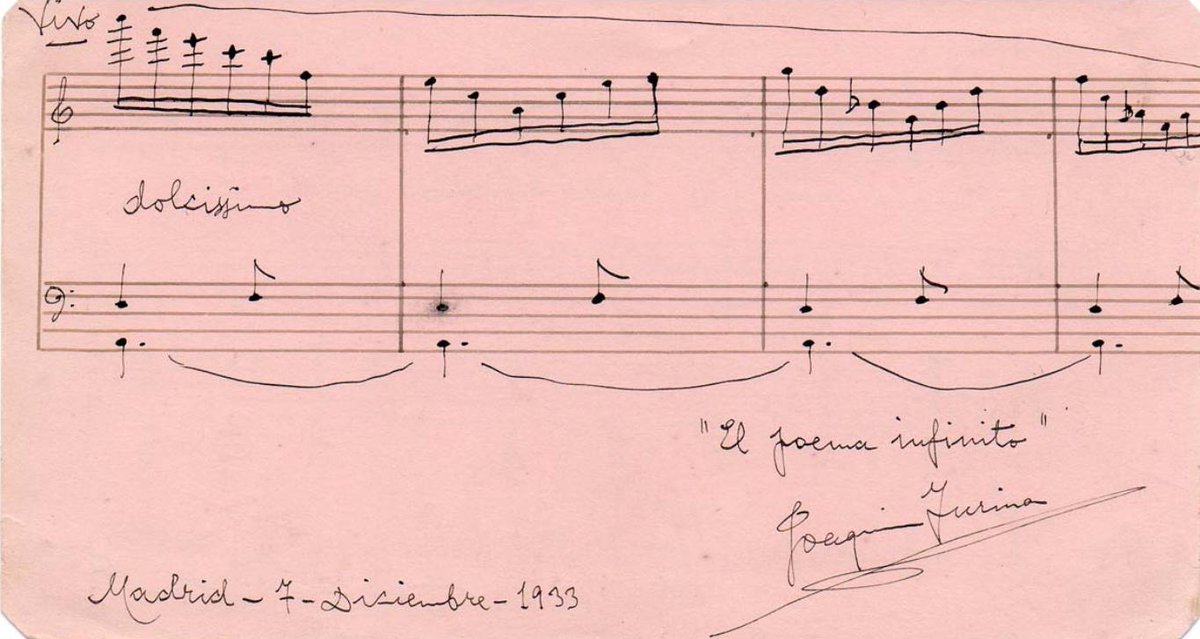 Vivo
dolcissimo
"El poema infinito"
Joaquín Turina
Madrid - 7 - Diciembre - 1933